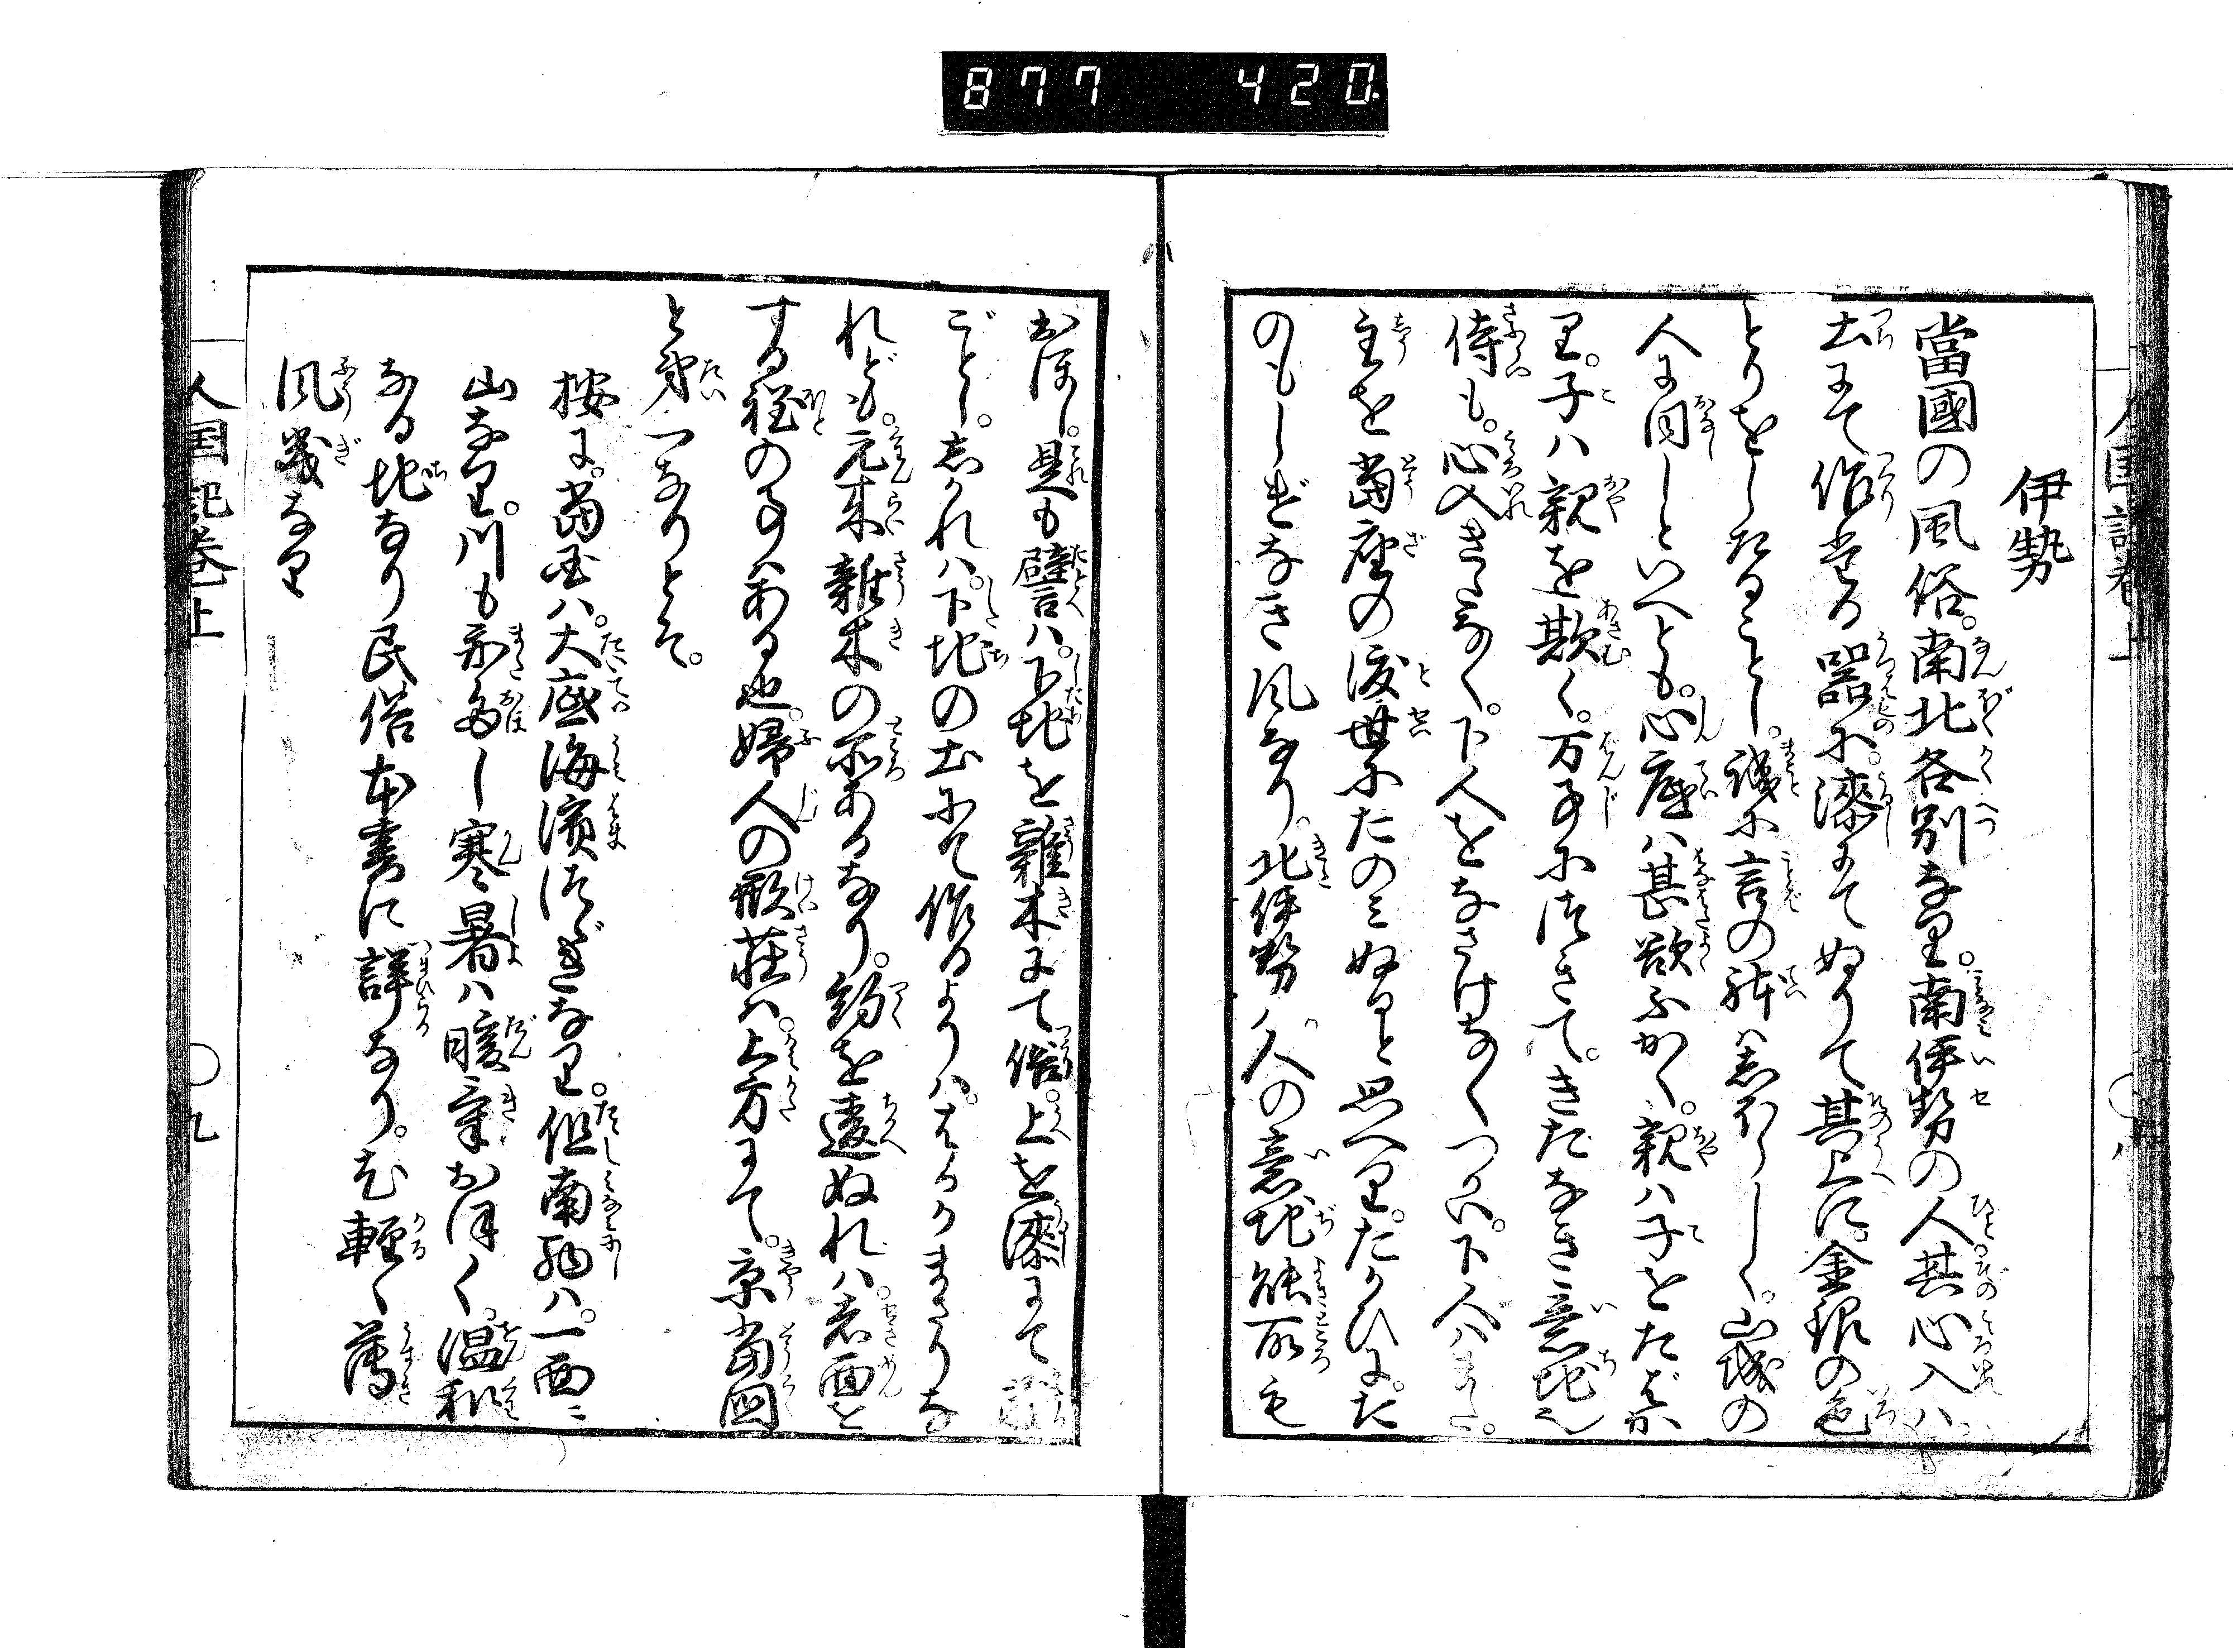 877 420.
人国記巻上
八
伊勢
當國の風俗。南北各別なり。南伊勢の人其心入ハ
土にて作りたる器に。漆にてぬりて其上に。金銀の色
とりをしたることし。誠に言の躰ハしほらしく。山城の
人に同しといへとも。心底ハ甚欲ふかく。親ハ子をたばか
り。子ハ親を欺く。万事に付さて。きたなき意地也
侍も。心入きたなく。下人をなさけなくつかい。下人ハまた。
主を當座の渡世にたのミぬると思へり。たかひに。た
のもしげなき風なり。北伊勢ハ。人の意地能所も
おほし。是も譬ハ。下地を雑木にて拵。上を漆にて
ごとし。しかれハ。下地の土にて作るよりハ。はるかまさりな
れども。元来雑木の所あるなり。約を違ぬれハ。赤面を
する程の事ハある也。婦人の形荘ハ。上方にて。京當国
と第一なりとそ。
按に。當国ハ。大底海濱つゞきなり。但南西ハ。一面ニ
山なり。川も亦多し寒暑ハ暖気おほく。温和
なる地なり民俗本書に詳なり。尤軽く薄き
風儀なり
人国記巻上
九